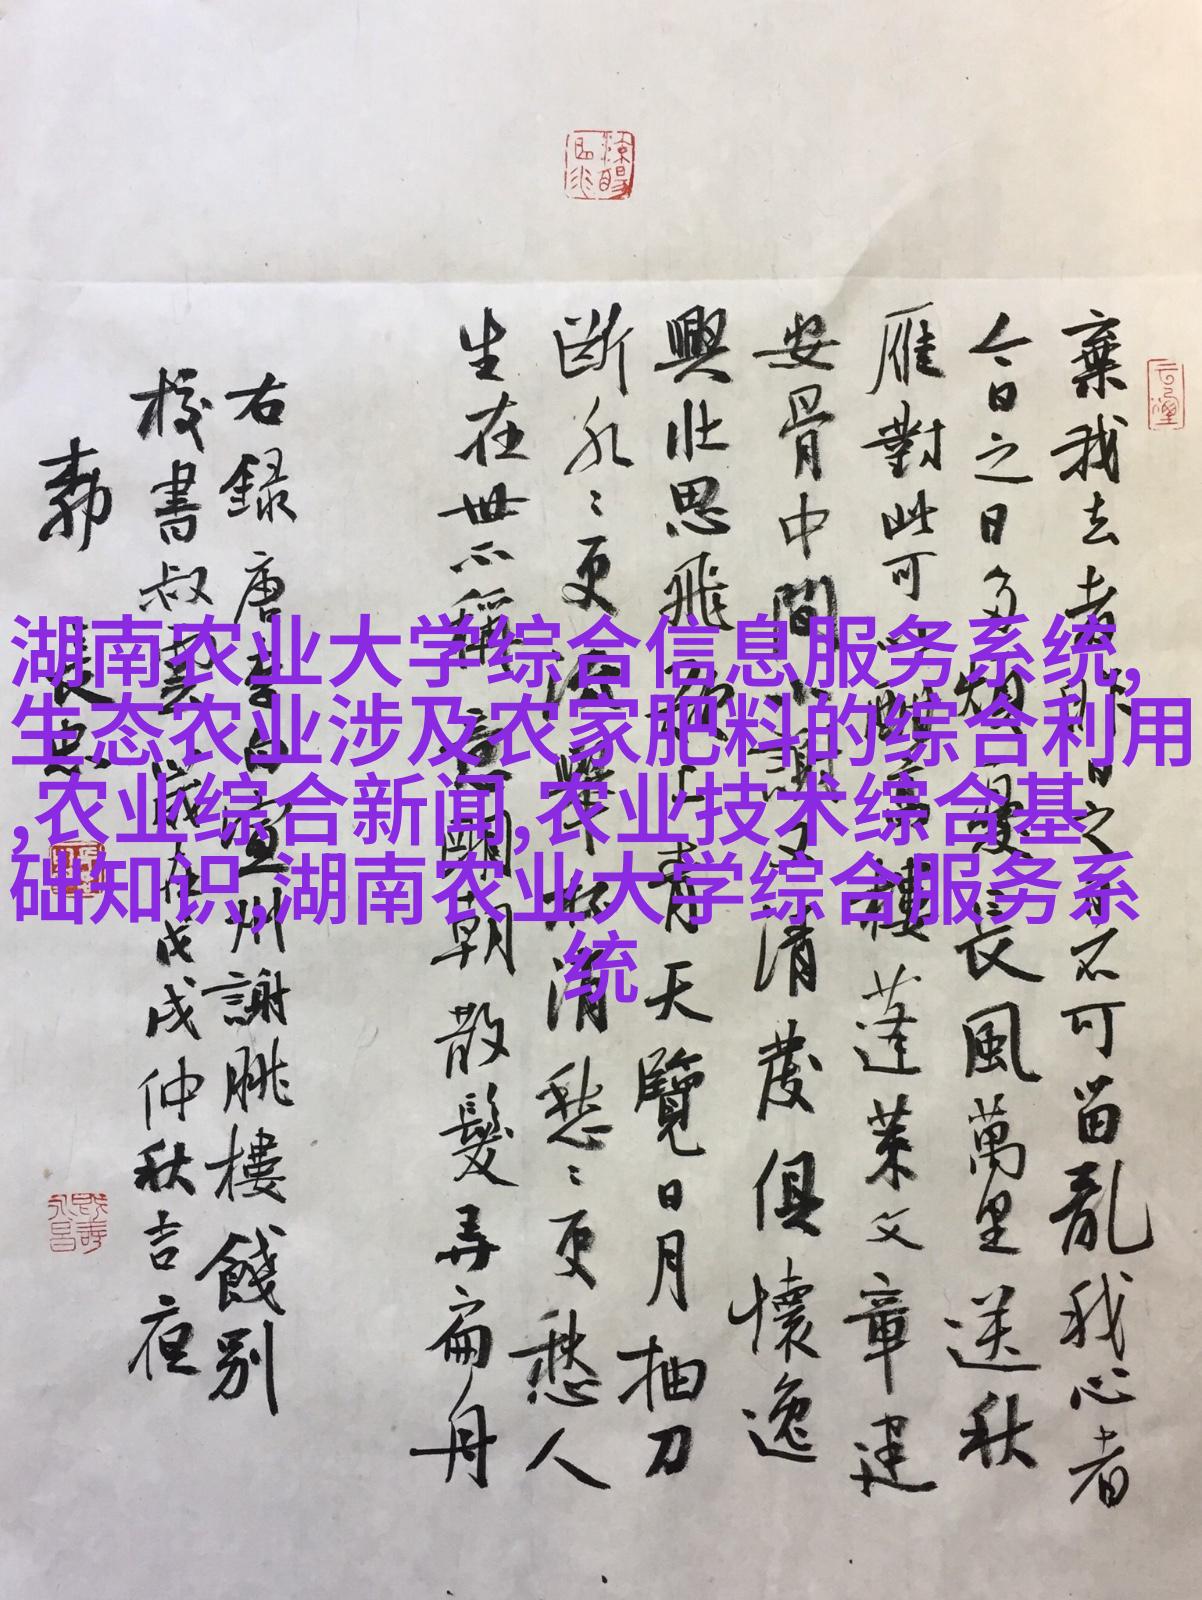 棄我去者昨日之日不可留亂我心者
今日之日多煩憂長風萬里送秋
雁對此可以酣高樓蓬萊文章建
安骨中間小謝又清發俱懷逸
興壯思飛欲上青天覽日月抽刀
斷水〻更流舉杯消愁〻更愁人
生在世不稱意明朝散髮弄扁舟
右録唐李白宣州謝朓樓餞別
校書叔雲歲戊戌仲秋吉夜
湖南农业大学综合信息服务系统,
生态农业涉及农家肥料的综合利用
,农业综合新闻,农业技术综合基
础知识,湖南农业大学综合服务系
统